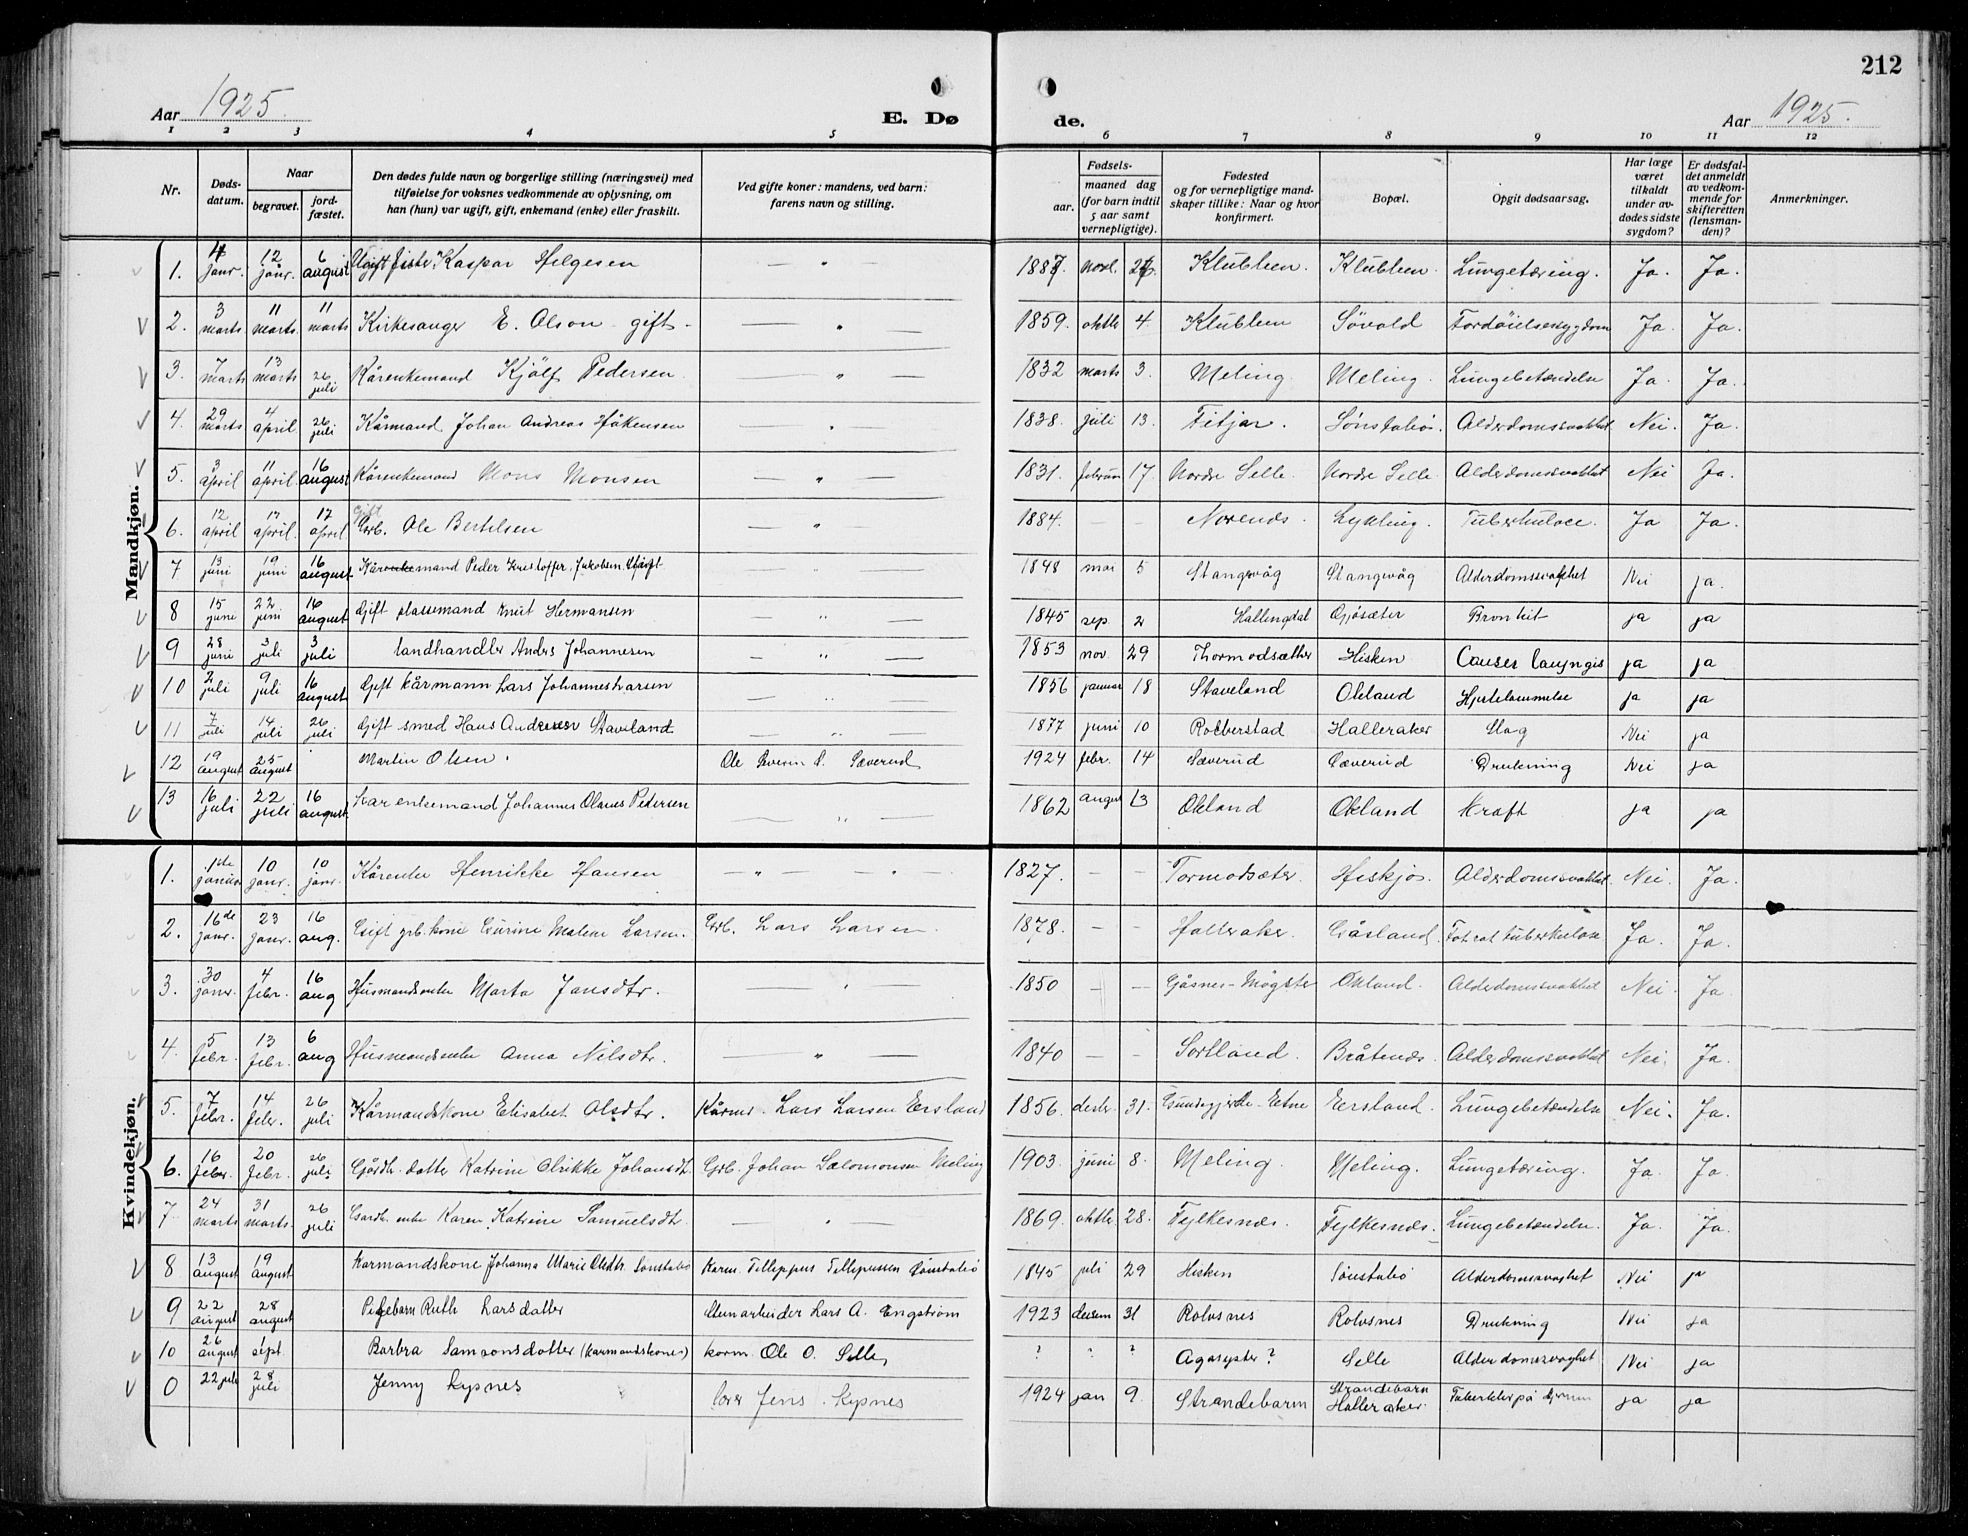 212
Aar 1925.
E. Dø
de.
Aar 1925.
1 2 3 4 5 6 7 8 9 10 11 12
Nr.
Døds-
datum.
Naar
begravet.
jord-
fæstet.
Den dødes fulde navn og borgerlige stilling (næringsvei) med
tilføielse for voksnes vedkommende av oplysning, om
han (hun) var ugift, gift, enkemand (enke) eller fraskilt.
Ved gifte koner: mandens, ved barn:
farens navn og stilling.
Fødsels-
aar.
maaned dag
(for barn indtil
5 aar samt
vernepligtige).
Fødested
og for vernepligtige mand-
skaper tillike: Naar og hvor
konfirmert.
Bopæl.
Opgit dødsaarsag.
Har læge
været
tilkaldt
under av-
dødes sidste
sygdom?
Er dødsfal-
det anmeldt
av vedkom-
mende for
skifteretten
(lensman-
den)?
Anmerkninger.
Mandkjøn.
1. 4 janr. 12 janr. 6 august Ugift fisker Kaspar Helgesen — „ — 1887. novl. Klubben. Klubben. Lungetæring. Ja. Ja.
2. 3 marts 11 marts. 11 marts Kirkesanger E. Olson gift. — „ — 1859. oktbr 4. Klubben Søvold Fordøielsessygdom Ja. Ja.
3. 7 marts 13 marts 26 juli Kårenkemand Kjölf Pedersen. — „ — 1832 marts 3. Meling. Meling. Lungebetændelse Ja. Ja.
4. 29 marts 4 april. 26 juli Kårmand Johan Andreas Håkensen — „ — 1838. juli 13. Fitjar. Sønstabø. Alderdomssvakhet Nei. Ja.
5. 3 april 11 april. 16 august Kårenkemand Mons Monsen — „ — 1831. februar 17. Nordre Selle. Nordre Selle. Alderdomssvakhet Nei Ja.
6. 12 april 17 april. 17 april Gift Grb. Ole Bertelsen — „ — 1884. — — Norends. Lykling. Tuberkulose. Ja Ja.
7 13 juni 19 juni 16 august Kårenkemand Peder Kristoffer Jakobsen Ugift 1848 mai 5 Stangevåg Stangevåg Alderdomssvakhet Nei ja.
8 15 june 22 juni 16 august Gift plassemand Knut Hermansen — „ — 1845 sep. 2 Hallingdal Gjøsæter Bronkit ja ja
9 28 juni 3 juli 3 juli landhandler Anders Johannesen — „ — 1853 nov. 29 Thormodsæther Hisken Cancer laryngis ja ja
10 2 juli 9 juli 16 august Gift kårmann Lars Johannes Larsen — „ — 1856 januar 18 Staveland Økland Hjertelammelse ja ja
11 7 juli 14 juli 26 juli Gift smed Hans Andersen Staveland — „ — 1877 juni 10 Rolberstad Halleraker Slag Nei ja
12 19 august 25 august Martin Olsen. Ole Severin S. Sæverud 1924 febr. 14 Sæverud Sæverud Drukning Nei ja
13 16 juli 22 juli 16 august Kar enkemand Johannes Olaus Pedersen — „ — 1862 august 13 Økland Økland Kræft ja ja
Kvindekjøn.
1. 1de januar 10 janr. 10 janr. Kårenke Henrikke Hansen — „ — „ — 1827. — — Tormodsæter. Hiskjo. Alderdomssvakhet. Nei. Ja.
2. 16de janr. 23 janr. 16 aug. Gift grb. kone Gurine Malene Larsen. Grb. Lars Larsen. 1878. — — Halleraker. Gåsland. tuberkulose Ja. Ja.
3. 30 janr. 4 febr. 16 aug Husmandsenke Marta Jansdtr. — „ — 1850 — — Gåsnes-Møgster Økland. Alderdomssvakhet Nei. Ja.
4. 5 febr. 13 febr. 6 aug Husmandsenke Anna Nilsdtr. — „ — 1840 — — Sortland. Bråtenes. Alderdomssvakhet Nei. Ja.
5. 7 febr. 14 febr. 26 juli Kårmandskone Elisabet Olsdtr. Kårmd. Lars Larsen Eersland 1856. desbr. 31. Etne Eersland. Lungebetændelse Nei. Ja.
6. 16 febr. 20 febr. 26 juli Gårdb. datter Katrine Olrikke Johansdtr. Grb. Johan Salomonsen Meling 1903. juni 8. Meling. Meling. Lungetæring. Ja. Ja.
7. 24 marts 31 marts. 26 juli Gardb. enke Karen Katrine Samuelsdtr. — „ — 1869. oktbr. 28. Fylkesnæs. Fylkesnæs. Lungebetændelse. Ja. Ja.
8 13 august 19 august Karmandskone Johanna Marie Olsdtr. Sønstabø Karm. Tilleppus Tillepussen Sønstabø 1845 juli 29 Hisken Sønstabø Alderdomsvaghet Nei ja
9 22 august 28 august Pigebarn Ruth Larsdatter Larsarbeider Lars A. Engstrøm 1923 desem 31 Rolvsnes Rolvsnes Drukning Nei ja
10 26 august 1 sept. Barbra Samsonsdatter (karmandskone) karm. Ole O. Selle, ? ? ? Agasyster? Selle Alderdomsvaghet Nei ja
0 22 juli 28 juli Jenny Lypnes Jens Lypnes 1924 jan 9. Strandebarm Strandebarm Halleraker. ja ja